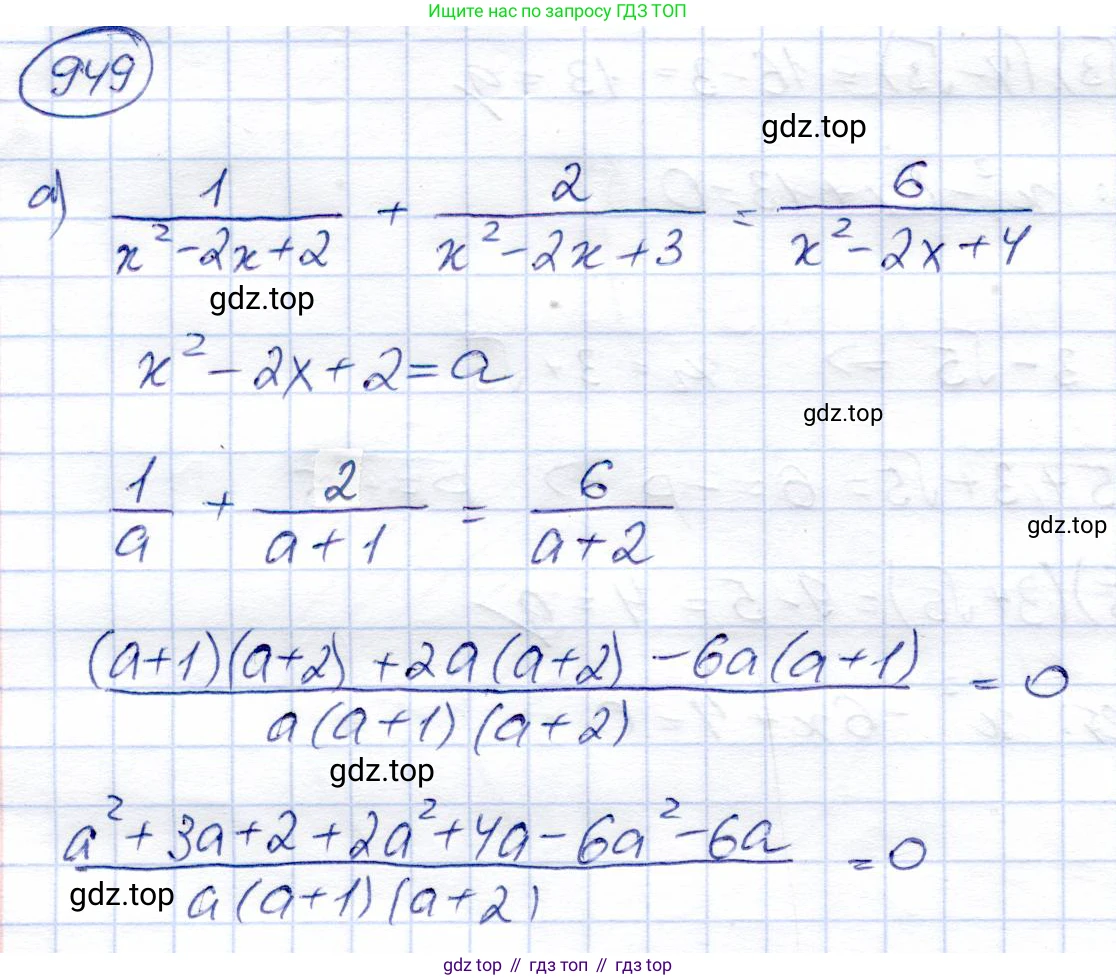 Ищите нас по запросу ГДЗ ТОП
949
gdz.top
а) 1/(x²-2x+2) + 2/(x²-2x+3) = 6/(x²-2x+4)
gdz.top
x²-2x+2=a
gdz.top
1/a + 2/(a+1) = 6/(a+2)
gdz.top
((a+1)(a+2)+2a(a+2)-6a(a+1))/(a(a+1)(a+2)) = 0
gdz.top
(a²+3a+2+2a²+4a-6a²-6a)/(a(a+1)(a+2)) = 0
gdz.top
gdz top // гдз топ // гдз top